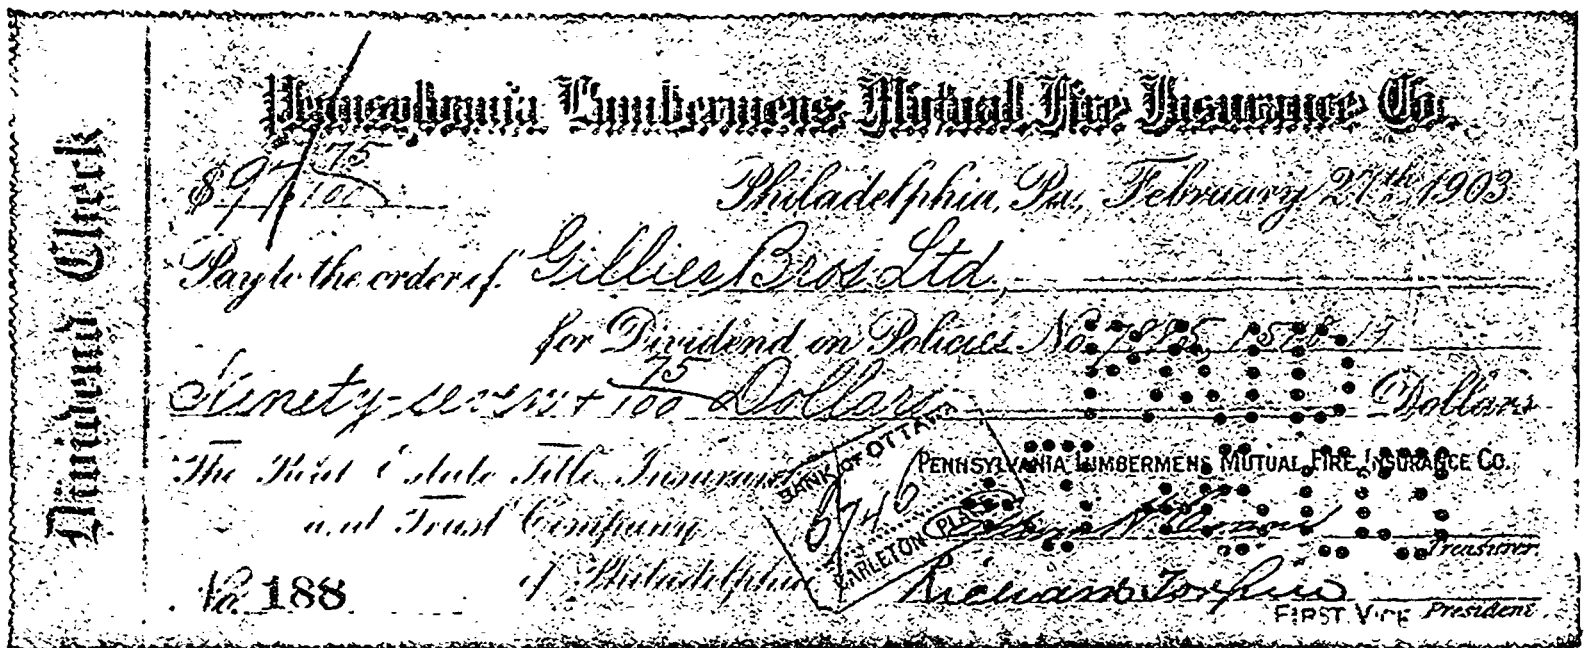 Dividend Check
Pennsylvania Lumbermens Mutual Fire Insurance Co.
$97 75/100
Philadelphia, Pa., February 27th 1903
Pay to the order of Gillies Bros Ltd.
for Dividend on Policies No.
Ninety-seven + 75/100 Dollars Dollars
The Real Estate Title Insurance
and Trust Company
of Philadelphia
No. 188
BANK OF OTTAWA
CARLETON PLACE
PENNSYLVANIA LUMBERMENS MUTUAL FIRE INSURANCE CO.
Treasurer
FIRST VICE President
PAID